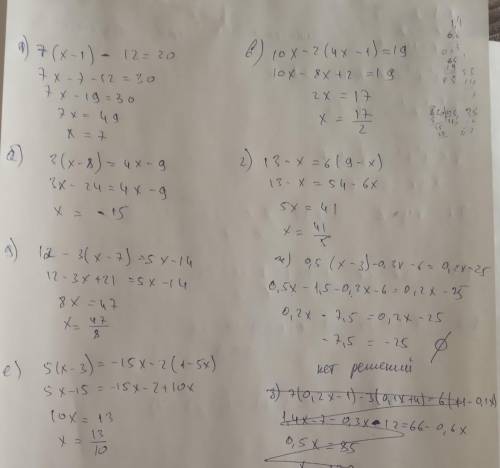 а) 7(x-1) - 12 = 30
7x - 7 - 12 = 30
7x - 19 = 30
7x = 49
x = 7
б) 3(x-8) = 4x - 9
3x - 24 = 4x - 9
x = -15
д) 12 - 3(x-7) = 5x - 14
12 - 3x + 21 = 5x - 14
8x = 47
x = 47/8
е) 5(x-3) = -15x - 2(1-5x)
5x - 15 = -15x - 2 + 10x
10x = 13
x = 13/10
в) 10x - 2(4x-1) = 19
10x - 8x + 2 = 19
2x = 17
x = 17/2
г) 13 - x = 6(9-x)
13 - x = 54 - 6x
5x = 41
x = 41/5
ж) 0,5(x-3) - 0,3x - 6 = 0,2x - 25
0,5x - 1,5 - 0,3x - 6 = 0,2x - 25
0,2x - 7,5 = 0,2x - 25
-7,5 = -25 ∅
нет решений
з) 7(0,2x-1) - 3(0,1x+4) = 6(11-0,1x)
1,4x - 7 - 0,3x - 12 = 66 - 0,6x
0,5x = 85